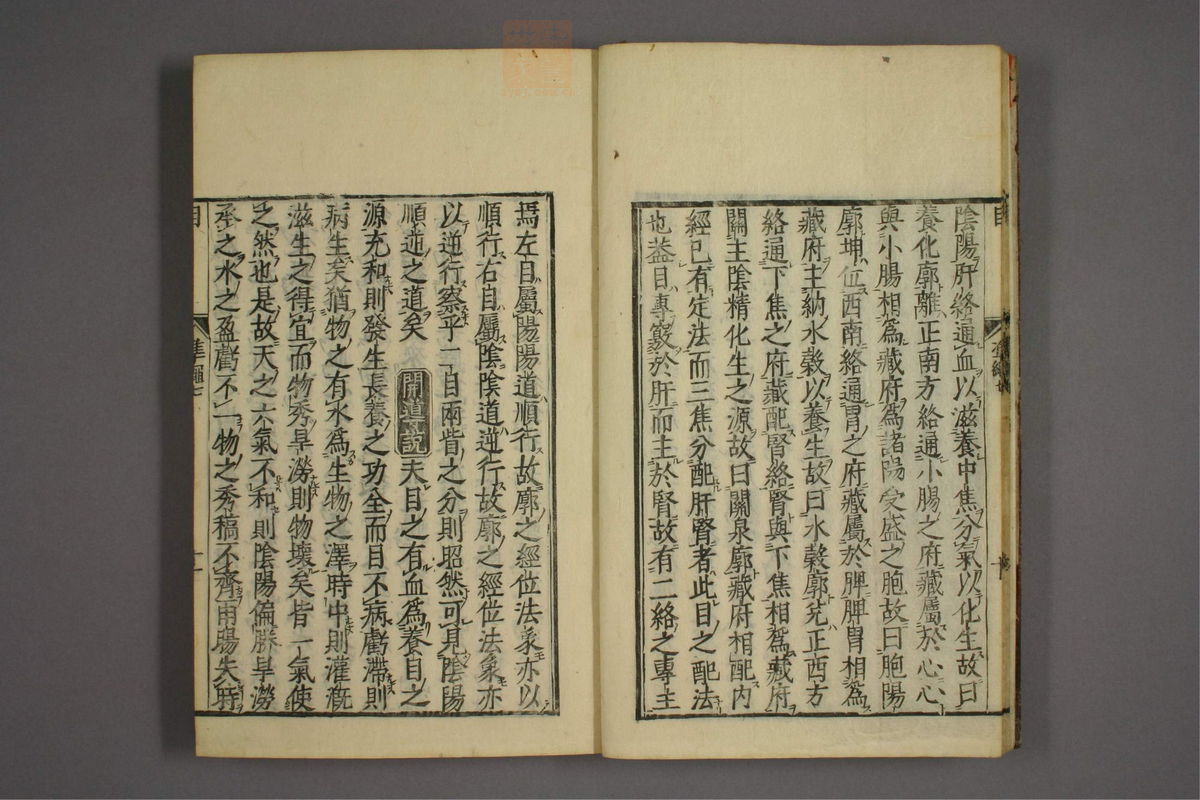 陰陽肝絡通血以滋養中焦分氣以化生故曰
養化廓離正南方絡通小腸之府藏屬於心心
與小腸相爲藏府爲諸陽受盛之胞故曰胞陽
廓坤位西南絡通胃之府藏屬於脾脾胃相爲
藏府主納水穀以養生故曰水穀廓兊正西方
絡通下焦之府藏配腎絡腎與下焦相爲藏府
關主陰精化生之源故曰關泉廓藏府相配内
經已有定法而三焦分配肝腎者此目之配法
也葢目專竅於肝而主於腎故有二絡之專主
焉左目屬陽陽道順行故廓之經位法象亦以
順行右目屬陰陰道逆行故廓之經位法象亦
以逆行察乎二目兩眥之分則昭然可見陰陽
順逆之道矣　開導說　夫目之有血爲養目之
源充和則發生長養之功全而目不病虧滯則
病生矣猶物之有水爲生物之澤時中則灌漑
滋生之得宜而物秀旱澇則物壞矣皆一氣使
之然也是故天之六氣不和則陰陽偏勝旱澇
承之水之盈虧不一物之秀稿不齊雨暘失時